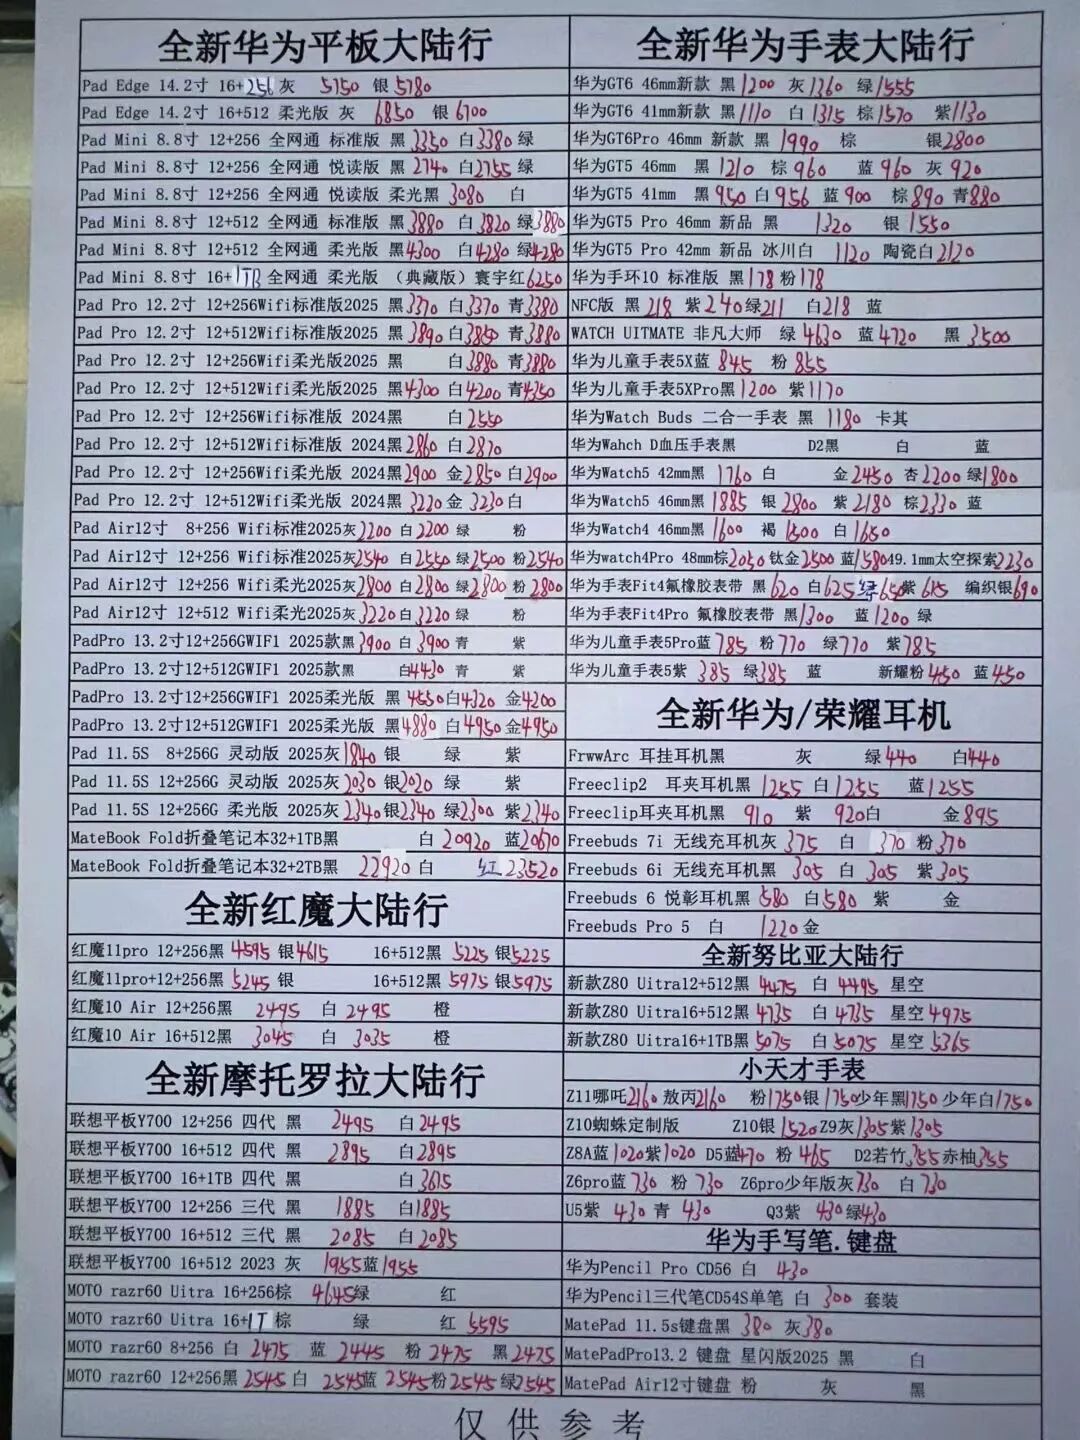 全新华为平板大陆行
Pad Edge 14.2寸 16+256 灰 5750 银5780
Pad Edge 14.2寸 16+512 柔光版 灰 6850 银 6700
Pad Mini 8.8寸 12+256 全网通 标准版 黑3350 白3380 绿
Pad Mini 8.8寸 12+256 全网通 悦读版 黑2740 白2755 绿
Pad Mini 8.8寸 12+256 全网通 悦读版 柔光黑 3080 白
Pad Mini 8.8寸 12+512 全网通 标准版 黑3880 白3820 绿3880
Pad Mini 8.8寸 12+512 全网通 柔光版 黑4300 白4280 绿4280
Pad Mini 8.8寸 16+1TB 全网通 柔光版 (典藏版) 寰宇红6250
Pad Pro 12.2寸 12+256Wifi标准版2025 黑3370 白3370 青3380
Pad Pro 12.2寸 12+512Wifi标准版2025 黑3890 白3850 青3880
Pad Pro 12.2寸 12+256Wifi柔光版2025 黑 白3880 青3880
Pad Pro 12.2寸 12+512Wifi柔光版2025 黑4300 白4200 青4350
Pad Pro 12.2寸 12+256Wifi标准版 2024黑 白2550
Pad Pro 12.2寸 12+512Wifi标准版 2024黑2860 白2870
Pad Pro 12.2寸 12+256Wifi柔光版 2024黑2900 金2850 白2900
Pad Pro 12.2寸 12+512Wifi柔光版 2024黑3220 金 3230 白
Pad Air12寸 8+256 Wifi标准2025灰2200 白2200 绿 粉
Pad Air12寸 12+256 Wifi标准2025灰2540 白2550 绿2500 粉2540
Pad Air12寸 12+256 Wifi柔光2025灰2800 白2800 绿2800 粉2800
Pad Air12寸 12+512 Wifi柔光2025灰3220 白3220 绿 粉
PadPro 13.2寸12+256GWIF1 2025款黑3900 白3900 青 紫
PadPro 13.2寸12+512GWIF1 2025款黑 白4430 青 紫
PadPro 13.2寸12+256GWIF1 2025柔光版 黑 4550 白4320 金4200
PadPro 13.2寸12+512GWIF1 2025柔光版 黑4880 白4950 金4950
Pad 11.5S 8+256G 灵动版 2025灰1840 银 绿 紫
Pad 11.5S 12+256G 灵动版 2025灰2030 银2020 绿 紫
Pad 11.5S 12+256G 柔光版 2025灰2340 银2340 绿2300 紫2340
MateBook Fold折叠笔记本32+1TB黑 白 20920 蓝20670
MateBook Fold折叠笔记本32+2TB黑 22920 白 红 23520
全新红魔大陆行
红魔11pro 12+256黑 4595 银4615 16+512黑 5225 银5225
红魔11pro+12+256黑 5245 银 16+512黑 5975 银5975
红魔10 Air 12+256黑 2495 白 2495 橙
红魔10 Air 16+512黑 3045 白 3035 橙
全新摩托罗拉大陆行
联想平板Y700 12+256 四代 黑 2495 白2495
联想平板Y700 16+512 四代 黑 2895 白2895
联想平板Y700 16+1TB 四代 黑 白3615
联想平板Y700 12+256 三代 黑 1885 白1885
联想平板Y700 16+512 三代 黑 2085 白2085
联想平板Y700 16+512 2023 灰 1955 蓝1955
MOTO razr60 Uitra 16+256棕 4645 绿 红
MOTO razr60 Uitra 16+1T 棕 绿 红 5595
MOTO razr60 8+256 白 2475 蓝 2445 粉 2475 黑2475
MOTO razr60 12+256黑 2545 白 2545 蓝 2545 粉2545 绿2545
全新华为手表大陆行
华为GT6 46mm新款 黑 1200 灰1360 绿1555
华为GT6 41mm新款 黑1110 白 1315 棕1570 紫1130
华为GT6Pro 46mm 新款 黑 1990 棕 银2800
华为GT5 46mm 黑 1210 棕 960 蓝 960 灰 920
华为GT5 41mm 黑950 白956 蓝 900 棕890 青880
华为GT5 Pro 46mm 新品 黑 1320 银 1550
华为GT5 Pro 42mm 新品 冰川白 1120 陶瓷白2120
华为手环10 标准版 黑178 粉178
NFC版 黑 218 紫 240 绿211 白218 蓝
WATCH UITMATE 非凡大师 绿 4630 蓝 4720 黑 3500
华为儿童手表5X蓝 845 粉 855
华为儿童手表5XPro黑1200 紫1170
华为Watch Buds 二合一手表 黑 1180 卡其
华为Wahch D血压手表黑 D2黑 白 蓝
华为Watch5 42mm黑 1760 白 金2450 杏 2200 绿1800
华为Watch5 46mm黑1885 银 2800 紫 2180 棕2330 蓝
华为Watch4 46mm黑1600 褐 1600 白 1650
华为watch4Pro 48mm棕2050 钛金2500 蓝1580 49.1mm太空探索2230
华为手表Fit4氟橡胶表带 黑 620 白625 绿650 紫 615 编织银690
华为手表Fit4Pro 氟橡胶表带 黑1300 蓝1200 绿
华为儿童手表5Pro蓝 785 粉 770 绿770 紫785
华为儿童手表5紫 385 绿385 蓝 新耀粉450 蓝 450
全新华为/荣耀耳机
FrwwArc 耳挂耳机黑 灰 绿 440 白440
Freeclip2 耳夹耳机黑 1255 白 1255 蓝1255
Freeclip耳夹耳机黑 910 紫 920 白 金895
Freebuds 7i 无线充耳机灰 375 白 370 粉370
Freebuds 6i 无线充耳机黑 305 白 305 紫305
Freebuds 6 悦彰耳机黑 580 白580 紫 金
Freebuds Pro 5 白 1220 金
全新努比亚大陆行
新款Z80 Uitra12+512黑 4475 白 4495 星空
新款Z80 Uitra16+512黑 4735 白 4735 星空 4975
新款Z80 Uitra16+1TB黑 5075 白 5075 星空 5365
小天才手表
Z11哪吒2160 敖丙2160 粉1750 银1750 少年黑1750 少年白1750
Z10蜘蛛定制版 Z10银1520 Z9灰1305 紫1305
Z8A蓝1020 紫1020 D5蓝470 粉 465 D2若竹355 赤柚355
Z6pro蓝 730 粉 730 Z6pro少年版灰730 白 730
U5紫 430 青 430 Q3紫 430 绿430
华为手写笔.键盘
华为Pencil Pro CD56 白 430
华为Pencil三代笔CD54S单笔 白 300 套装
MatePad 11.5s键盘黑 380 灰380
MatePadPro13.2 键盘 星闪版2025 黑 白
MatePad Air12寸键盘 粉 灰 黑
仅供参考